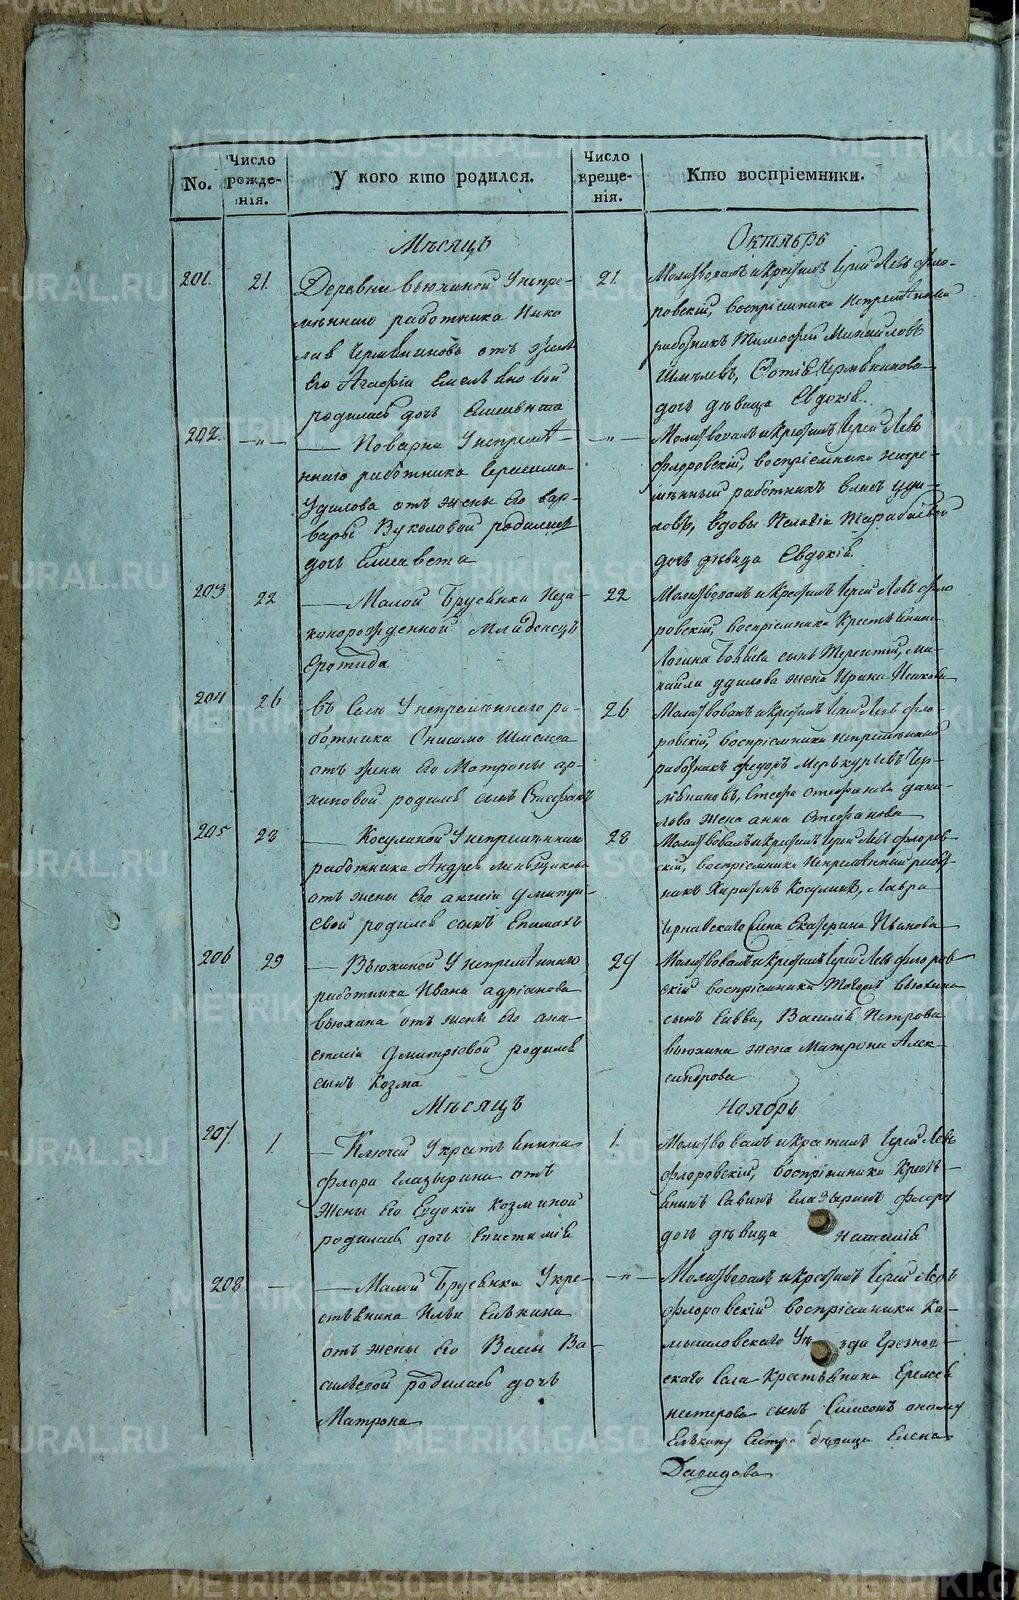 No.
Число рожде- нія.
У кого кто родился.
Число креще- нія.
Кто воспріемники.
Мѣсяцъ
Октябрь
201.
21.
Деревни Вьюхиной у непре-
мѣннаго работника Нико
лая от жены
его Агафіи Емельяновой
родилась дочь Елисавета
21.
Молитвовалъ и крестилъ Іерей Левъ Фло-
ровскій, воспріемники непремѣнный
работникъ Тимофей Михайловъ
Шмелевъ,
дочь дѣвица Евдокія.
202.
—„—
— Поварни у непремѣн-
наго работника Герасима
Удилова отъ жены его Вар-
вары Вуколовой родилась
дочь Елисавета
—„—
Молитвовалъ и крестилъ Іерей Левъ
Флоровскій, воспріемники непре-
мѣнный работникъ Власъ Уди-
ловъ, вдовы Пелагіи
дочь дѣвица Евдокія
203
22
— Малой Брусянки неза-
конорожденной младенецъ
Еротіида
22
Молитвовалъ и крестилъ Іерей Левъ Фло
ровскій, воспріемники крестьянина
Логина сынъ Терентій, Ми-
хайла Удилова жена Ирина
204
26
въ Селѣ у непремѣннаго ра-
ботника Онисима Шмелева
отъ жены его Матроны Ар-
хиповой родился сынъ Стефанъ
26
Молитвовалъ и крестилъ Іерей Левъ Фло-
ровскій, воспріемники непремѣнный
работникъ Федоръ Меркурьевъ
Стефанова Дани-
лова жена Анна Стефанова
205
28
— Косулиной у непремѣннаго
работника Андрея Меньщикова
отъ жены его Анисіи Дмитрі-
евой родился сынъ Епимахъ
28
Молитвовалъ и крестилъ Іерей Левъ Флоров-
скій, воспріемники непремѣнный работ-
никъ Харитонъ Косулинъ, Лавра
Чернавскаго жена Екатерина Иванова
206
29
— Вьюхиной у непремѣннаго
работника Ивана Адріанова
Вьюхина отъ жены его Ана-
стасіи Дмитріевой родился
сынъ Козма
29
Молитвовалъ и крестилъ Іерей Левъ Флоров
скій воспріемники Вьюхина
сынъ Савва, Василія Петрова
Вьюхина жена Матрона Алек-
сандрова
Мѣсяцъ
Ноябрь
207.
1.
— Ключей у крестьянина
Флора Глазырина отъ
жены его Евдокіи Козминой
родилась дочь Епистимія
1.
Молитвовалъ и крестилъ Іерей Левъ
Флоровскій, воспріемники кресть-
янинъ Савинъ Глазыринъ Флора
дочь дѣвица Наталія
208
—
— Малой Брусянки у кре-
стьянина Ильи Елькина
отъ жены его Вассы Ва-
сильевой родилась дочь
Матрона
—„—
Молитвовалъ и крестилъ Іерей Левъ
Флоровскій воспріемники Ка-
мышловскаго Уѣзда Грязнов-
скаго села крестьянина Еремея
Нестерова сынъ Симеонъ оному
Елькину сестра дѣвица Елена
Давидова
METRIKI.GASO-URAL.RU